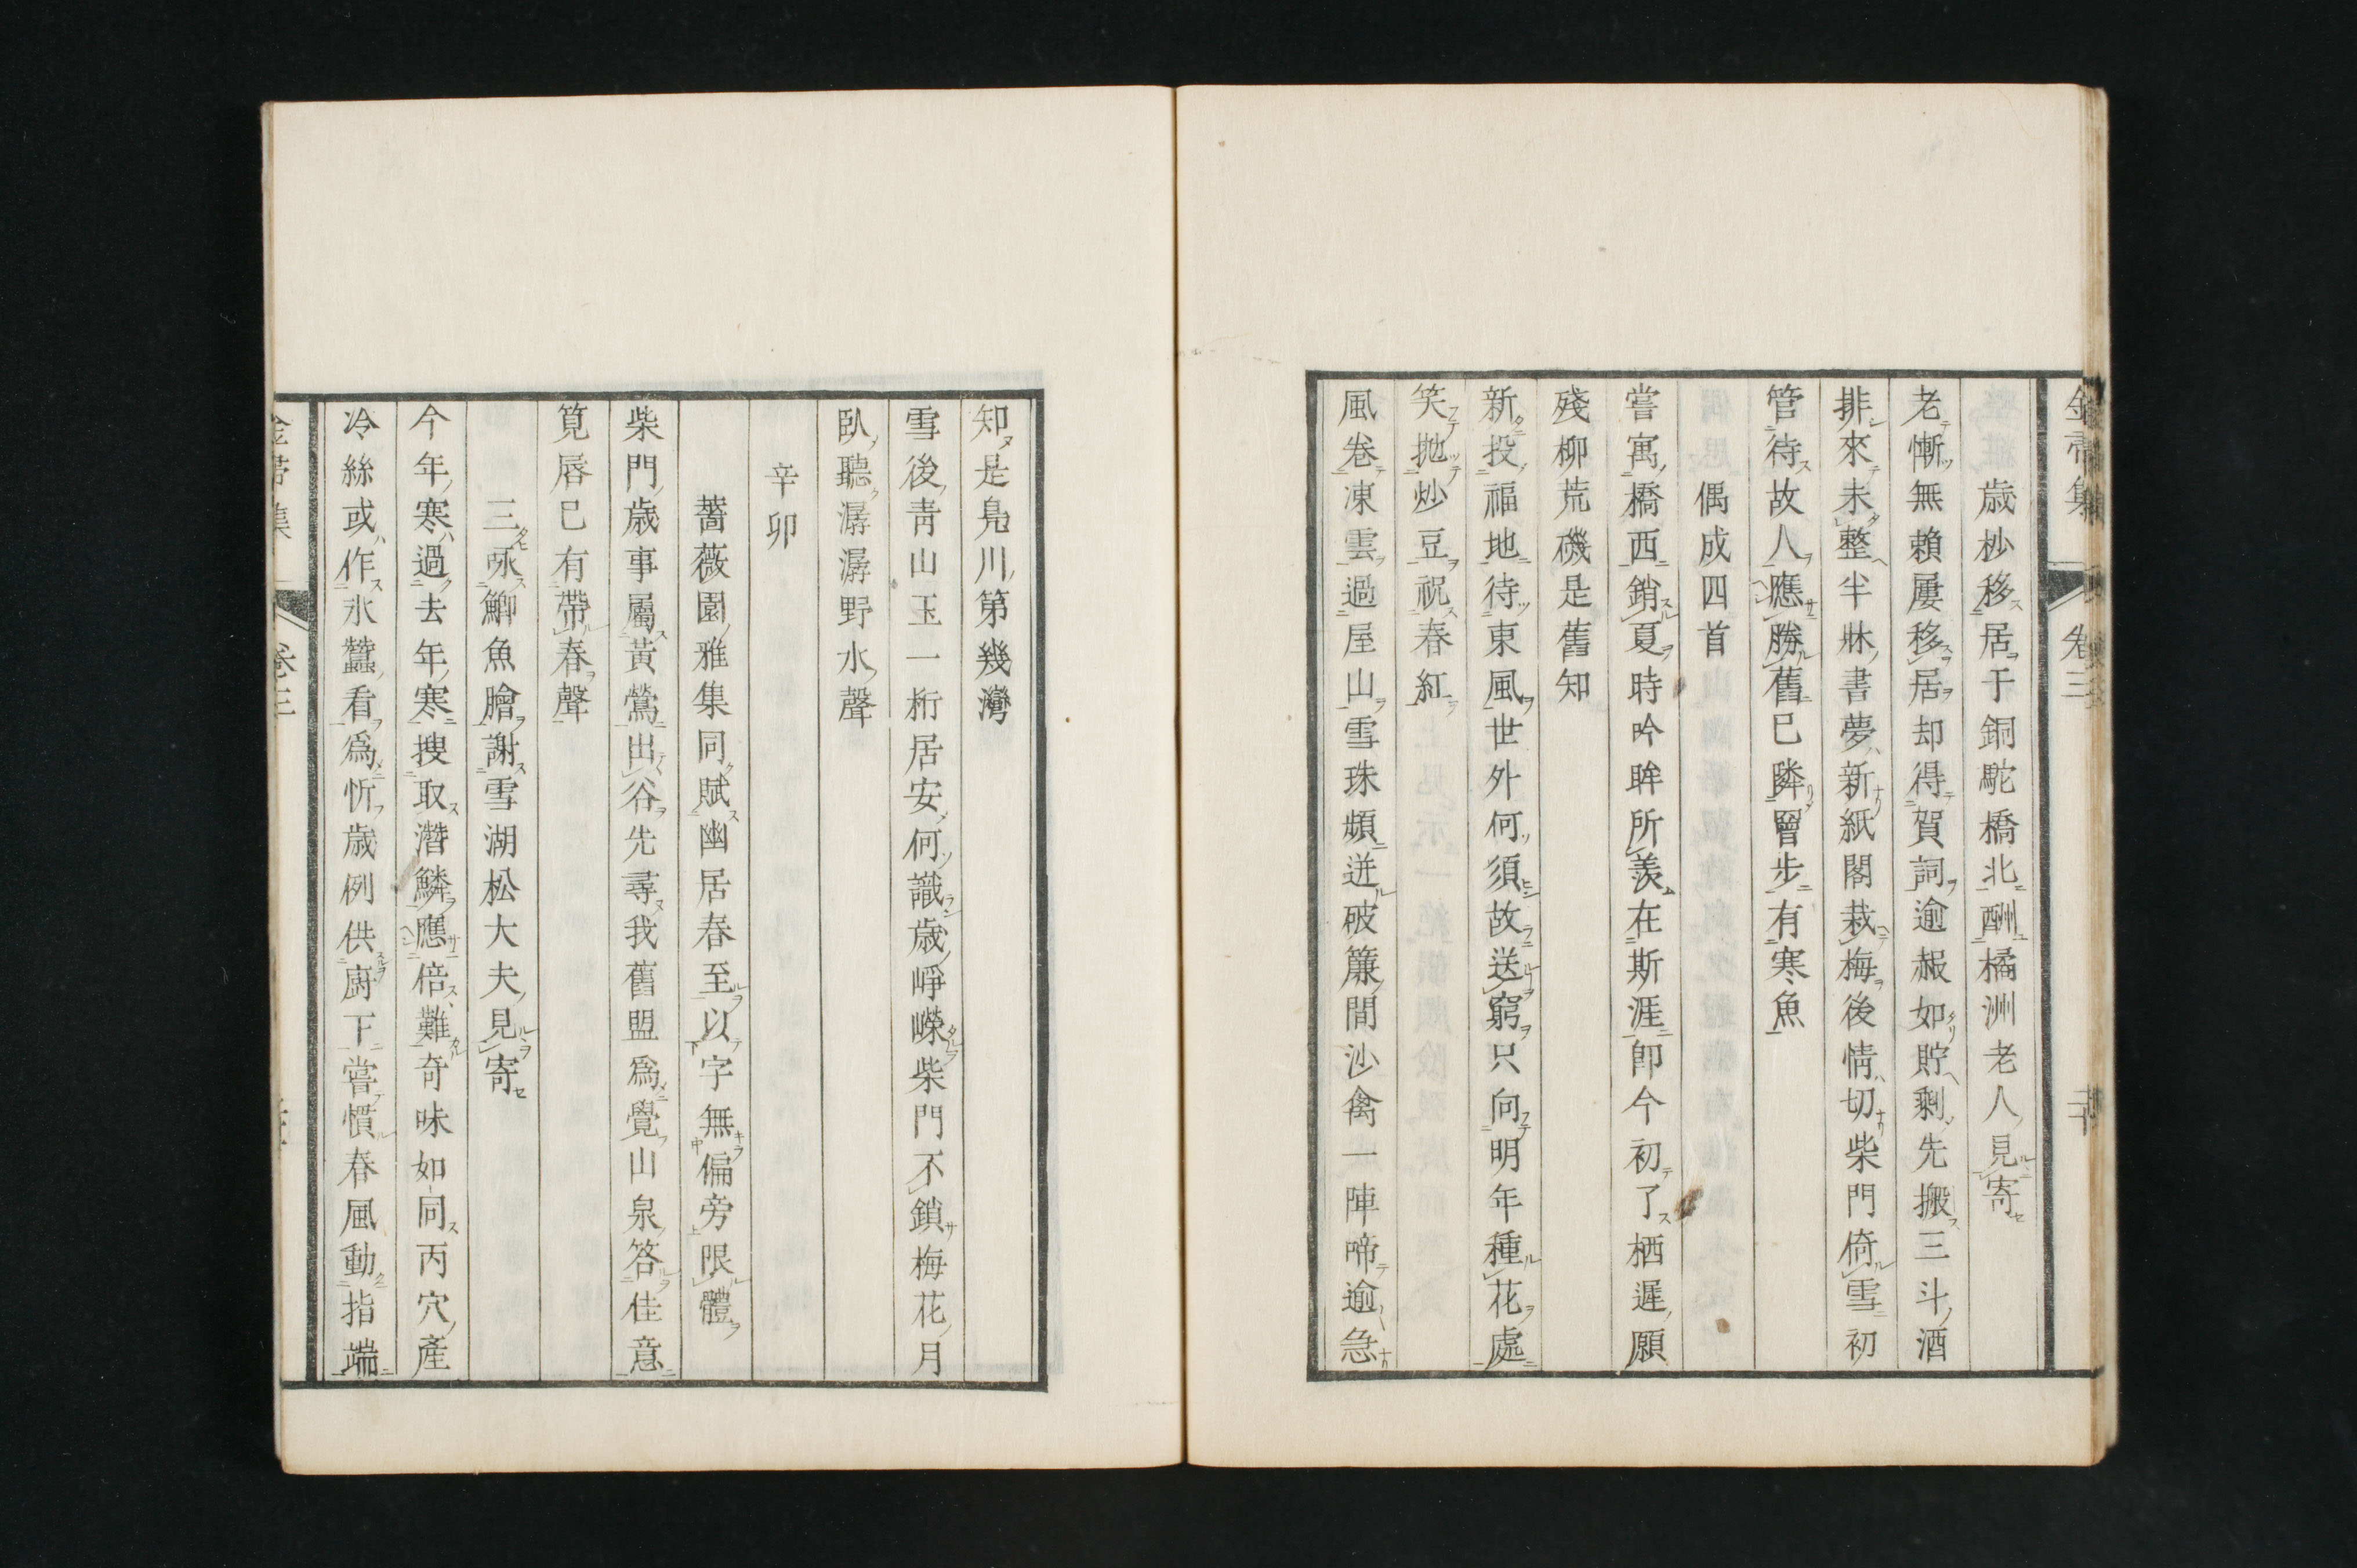 歳杪移居于銅駝橋北酬橘洲老人見寄
老慚無賴屢移居却得賀詞逾赧如貯剩先搬三斗酒
排來未整半牀書夢新紙閣栽梅後情切柴門倚雪初
管待故人應勝舊巳隣罾步有寒魚
偶成四首
嘗寓橋西銷夏時吟眸所羨在斯涯卽今初了栖遲願
殘柳荒磯是舊知
新投福地待東風世外何須故送窮只向明年種花處
笑抛炒豆祝春紅
風卷凍雲過屋山雪珠頻迸破簾間沙禽一陣啼逾急
金帚集 卷三
知是鳧川第幾灣
雪後靑山玉一桁居安何識歳崢嶸柴門不鎖梅花月
臥聽潺潺野水聲
辛卯
薔薇園雅集同賦幽居春至以字無偏旁限體
柴門歳事屬黃鶯出谷先尋我舊盟爲覺山泉答佳意
筧唇巳有帶春聲
三咏鯽魚膾謝雪湖松大夫見寄
今年寒過去年寒搜取潛鱗應倍難奇味如同丙穴產
冷絲或作氷蠶看爲忻歳例供廚下嘗慣春風動指端
金帚集 卷三